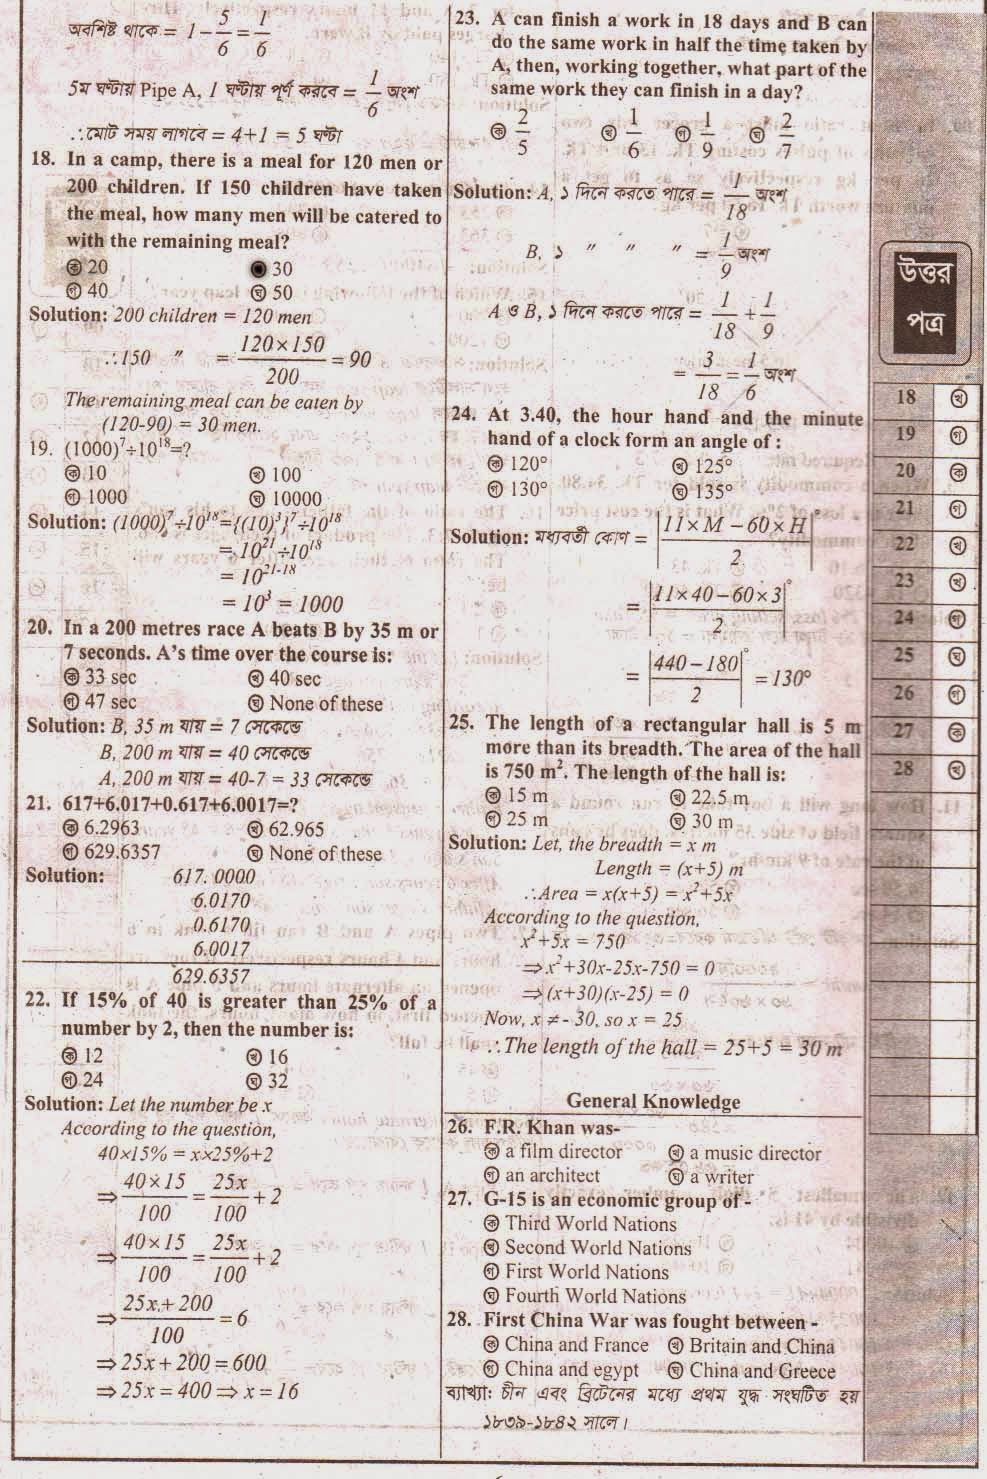 অবশিষ্ট থাকে = 1 - 5/6 = 1/6
5ম ঘণ্টায় Pipe A, 1 ঘণ্টায় পূর্ণ করবে = 1/6 অংশ
∴মোট সময় লাগবে = 4+1 = 5 ঘণ্টা
18. In a camp, there is a meal for 120 men or
200 children. If 150 children have taken
the meal, how many men will be catered to
with the remaining meal?
ⓚ 20 ● 30
ⓖ 40 ⓖ 50
Solution: 200 children = 120 men
∴150 " = 120×150/200 = 90
The remaining meal can be eaten by
(120-90) = 30 men.
19. (1000)⁷÷10¹⁸=?
(ক) 10 (খ) 100
(গ) 1000 (ঘ) 10000
Solution: (1000)⁷÷10¹⁸={(10)³}⁷÷10¹⁸
= 10²¹÷10¹⁸
= 10²¹⁻¹⁸
= 10³ = 1000
20. In a 200 metres race A beats B by 35 m or
7 seconds. A's time over the course is:
(ক) 33 sec (খ) 40 sec
(গ) 47 sec (ঘ) None of these
Solution: B, 35 m যায় = 7 সেকেন্ডে
B, 200 m যায় = 40 সেকেন্ডে
A, 200 m যায় = 40-7 = 33 সেকেন্ডে
21. 617+6.017+0.617+6.0017=?
(ক) 6.2963 (খ) 62.965
(গ) 629.6357 (ঘ) None of these
Solution: 617.0000
6.0170
0.6170
6.0017
629.6357
22. If 15% of 40 is greater than 25% of a
number by 2, then the number is:
(ক) 12 (খ) 16
(গ) 24 (ঘ) 32
Solution: Let the number be x
According to the question,
40×15% = x×25%+2
⇒ 40×15/100 = 25x/100 + 2
⇒ 40×15/100 = 25x/100 + 2
⇒ 25x+200/100 = 6
⇒ 25x+200 = 600
⇒ 25x = 400 ⇒ x = 16
23. A can finish a work in 18 days and B can
do the same work in half the time taken by
A, then, working together, what part of the
same work they can finish in a day?
(ক) 2/5 (খ) 1/6 (গ) 1/9 (ঘ) 2/7
Solution: A, ১ দিনে করতে পারে = 1/18 অংশ
B, ১ " " " = 1/9 অংশ
A ও B, ১ দিনে করতে পারে = 1/18 + 1/9
= 3/18 = 1/6 অংশ
24. At 3.40, the hour hand and the minute
hand of a clock form an angle of :
(ক) 120° (খ) 125°
(গ) 130° (ঘ) 135°
Solution: মধ্যবর্তী কোণ = |11×M - 60×H/2|°
= |11×40 - 60×3/2|°
= |440 - 180/2|° = 130°
25. The length of a rectangular hall is 5 m
more than its breadth. The area of the hall
is 750 m². The length of the hall is:
(ক) 15 m (খ) 22.5 m
(গ) 25 m (ঘ) 30 m
Solution: Let, the breadth = x m
Length = (x+5) m
∴Area = x(x+5) = x²+5x
According to the question,
x²+5x = 750
⇒x²+30x-25x-750 = 0
⇒ (x+30)(x-25) = 0
Now, x ≠ - 30, so x = 25
∴The length of the hall = 25+5 = 30 m
General Knowledge
26. F.R. Khan was-
(ক) a film director (খ) a music director
(গ) an architect (ঘ) a writer
27. G-15 is an economic group of -
(ক) Third World Nations
(খ) Second World Nations
(গ) First World Nations
(ঘ) Fourth World Nations
28. First China War was fought between -
(ক) China and France (খ) Britain and China
(গ) China and egypt (ঘ) China and Greece
ব্যাখ্যা: চীন এবং ব্রিটেনের মধ্যে প্রথম যুদ্ধ সংঘটিত হয়
১৮৩৯-১৮৪২ সালে।
উত্তর
পত্র
18 (খ)
19 (গ)
20 (ক)
21 (গ)
22 (খ)
23 (খ)
24 (গ)
25 (ঘ)
26 (গ)
27 (ক)
28 (খ)